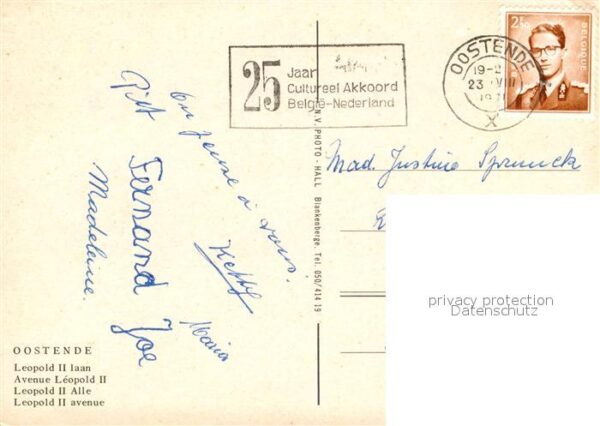 25 Jaar
Cultureel Akkoord
België-Nederland
OOSTENDE
19-2
23 VIII
X
2F50
BELGIQUE
On pense à vous!
Ketty
Maria
Pitt
Fernand
Joe
Madeleine.
N.V. PHOTO-HALL Blankenberge. Tel. 050/414 19
Mad. Justine Sprunck
privacy protection
Datenschutz
OOSTENDE
Leopold II laan
Avenue Léopold II
Leopold II Alle
Leopold II avenue